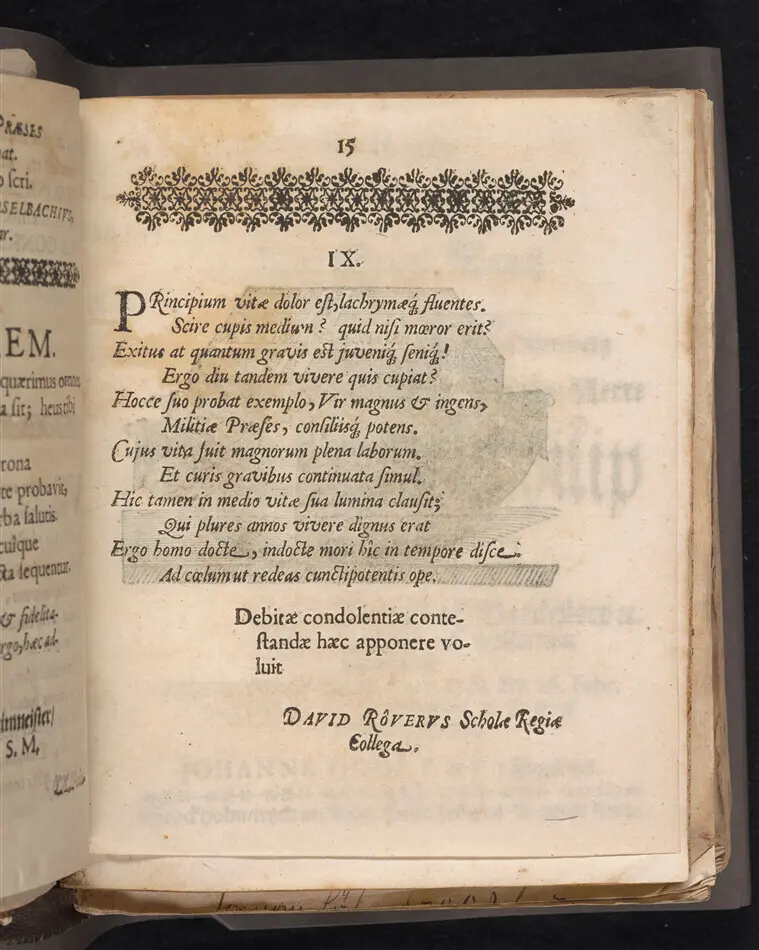 PRÆSES
at.
o ſcri.
SELBACHIVS,
r.
EM.
quærimus omnes
a ſit; heus tibi
rona
te probavit,
rba ſalutis.
cuſque
ſta ſequentur.
& fidelita-
rgo, hæc ad-
S. M.
15
IX.
PRincipium vitæ dolor eſt, lachrymæq́; fluentes.
Scire cupis medium? quid niſi mœror erit?
Exitus at quantum gravis eſt juveniq́; ſeniq́;!
Ergo diu tandem vivere quis cupiat?
Hocce ſuo probat exemplo, Vir magnus & ingens,
Militiæ Præſes, conſiliisq́; potens.
Cujus vita fuit magnorum plena laborum.
Et curis gravibus continuata ſimul.
Hic tamen in medio vitæ ſua lumina clauſit;
Qui plures annos vivere dignus erat
Ergo homo docte, indocte mori hîc in tempore diſce.
Ad cœlum ut redeas cunctipotentis ope.
Debitæ condolentiæ conte-
ſtandæ hæc apponere vo-
luit
DAVID RÔVERVS Scholæ Regiæ
Collega.